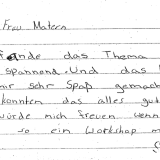 Frau Matern
fande das Thema
spannend. Und das
mir sehr Spaß gemach
konnten das alles gut
würde mich freuen wenn
so ein Workshop m